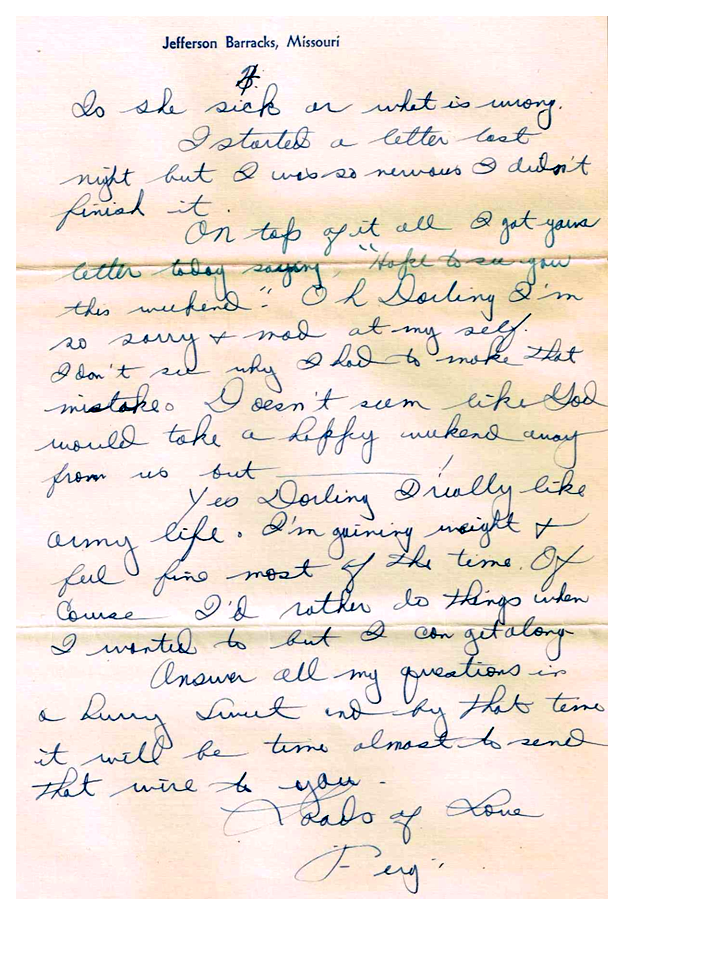 Jefferson Barracks, Missouri
Is she sick or what is wrong.
I started a letter last
night but I was so nervous I didn't
finish it.
On top of it all I got your
letter today saying, "Hope to see you
this weekend". Oh Darling I'm
so sorry & mad at my self.
I don't see why I had to make that
mistake. Doesn't seem like God
would take a happy weekend away
from us but ________!
Yes Darling I really like
army life. I'm gaining weight &
feel fine most of the time. Of
Course I'd rather do things when
I wanted to but I can get along
Answer all my questions in
a hurry Sweet and by that time
it will be time almost to send
that wire to you.
Loads of Love
Ferg.